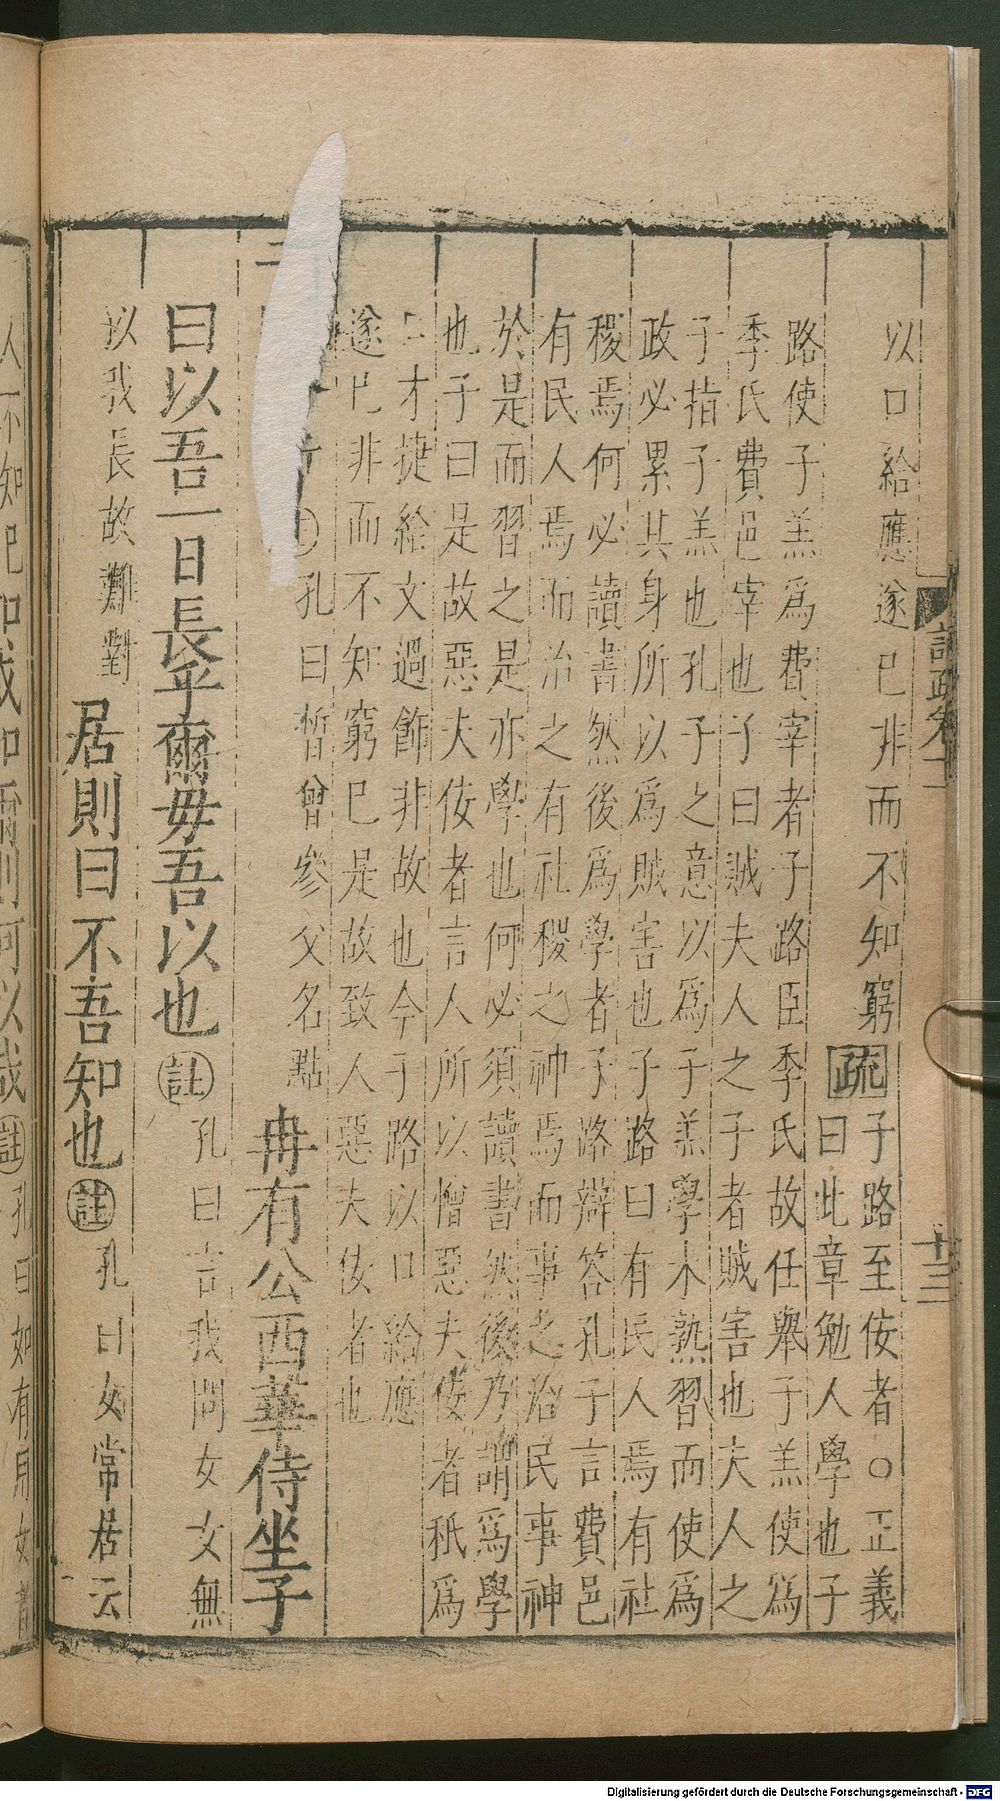 以口給應遂已非而不知窮 疏 子路至佞者○正義
曰此章勉人學也子
路使子羔爲費宰者子路臣季氏故任舉子羔使爲
季氏費邑宰也子曰賊夫人之子者賊害也夫人之
子指子羔也孔子之意以爲子羔學未熟習而使爲
政必累其身所以爲賊害也子路曰有民人焉有社
稷焉何必讀書然後爲學者子路辯答孔子言費邑
有民人焉而治之有社稷之神焉而事之治民事神
於是而習之是亦學也何必須讀書然後乃謂爲學
也子曰是故惡夫佞者言人所以憎惡夫佞者秖爲
口才捷給文過飾非故也今子路以口給應
遂已非而不知窮已是故致人惡夫佞者也
孔曰晳曾參父名點 冉有公西華侍坐子
曰以吾一日長乎爾毋吾以也 註 孔曰言我問女女無
以我長故難對 居則曰不吾知也 註 孔曰女常居云
十三
人不知已如或知爾則何以哉 註 孔曰如有用女者
Digitalisierung gefördert durch die Deutsche Forschungsgemeinschaft - DFG